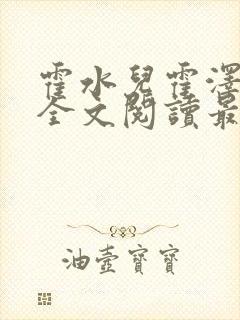 霍水兒霍澤
全文閱讀最
油壺寶寶